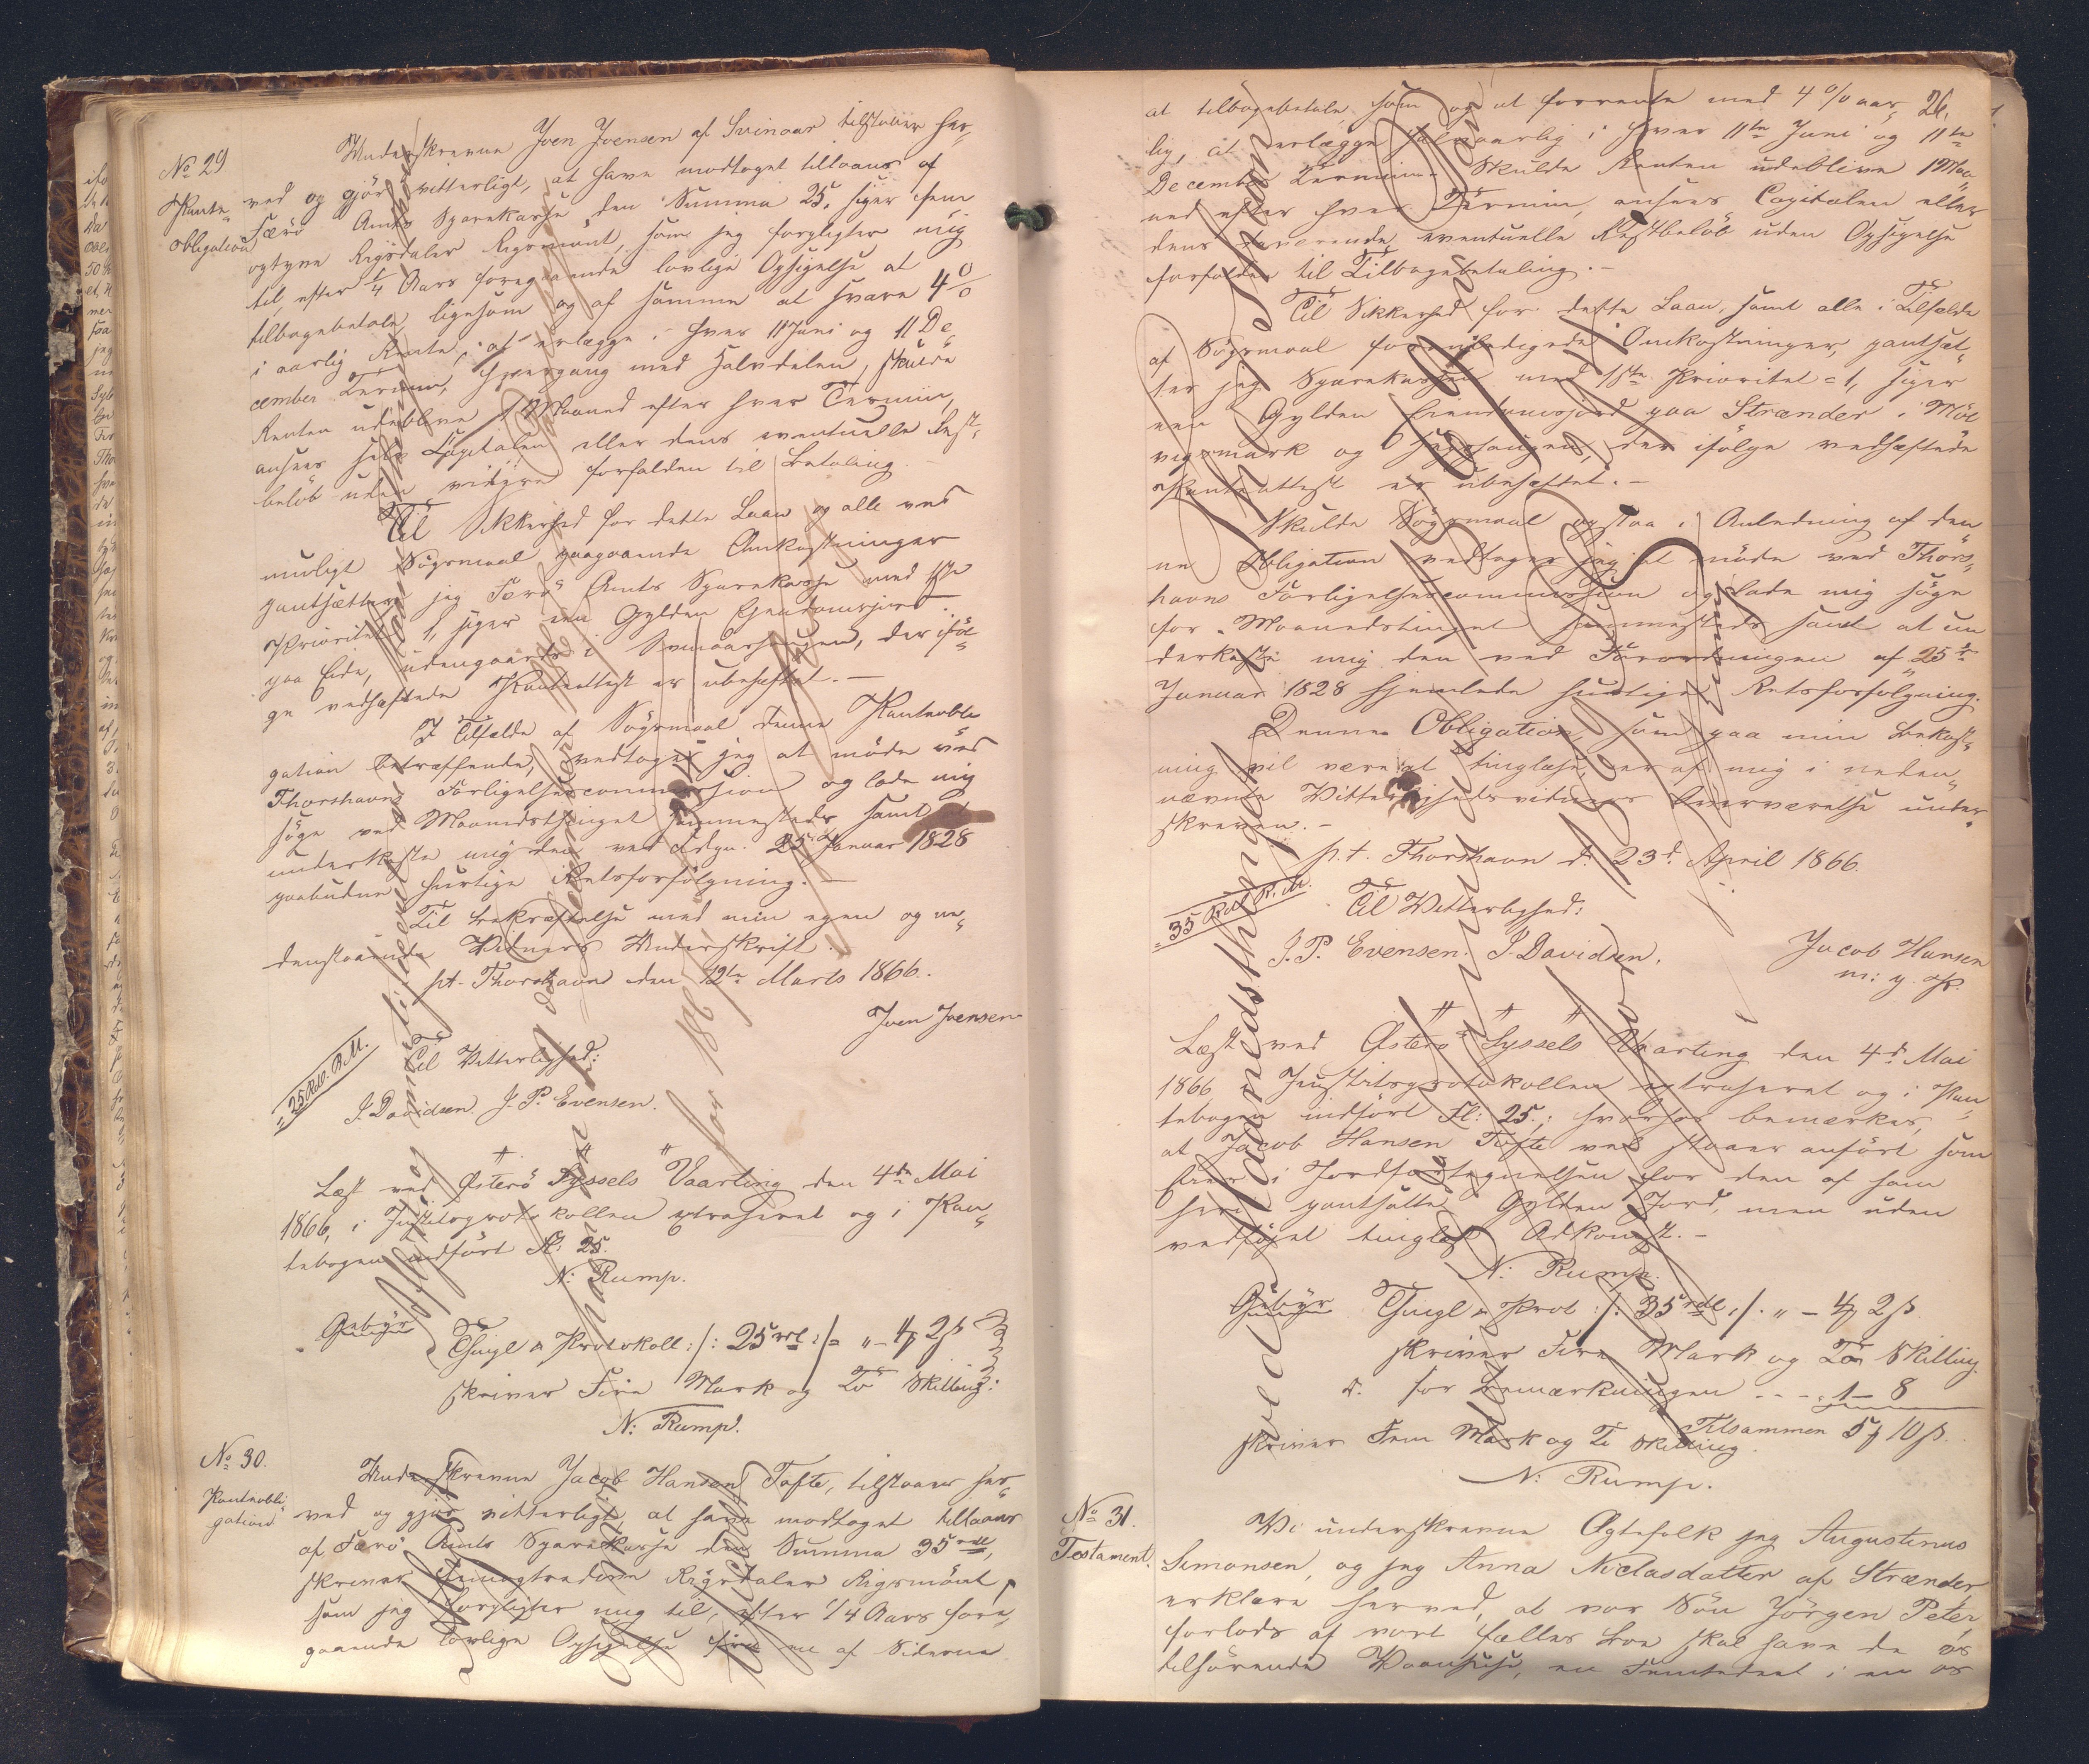 No 29
Pante
obligation
Underskrevne Joen Joensen af Svinaar tilstaaer her„
ved og gjør vitterligt, at have modtaget tillaans af
Færö Amts Sparekasse den Summa 25, siger fem
ogtyve Rigsdaler Rigsmönt, som jeg forpligter mig
til, efter 1/4 Aars foregaaende lovlig Opsigelse at
tilbagebetale, ligesom og af samme at svare 4%
i aarlig Rente, at erlægge i hver 11 Juni og 11 De„
cember Termin, hvergang med Halvdelen, skulde
Renten udeblive 1 Maaned efter hver Termin,
ansees hele Capitalen eller dens eventuelle Rest„
belöb uden videre forfalden til Betaling.—
Til Sikkerhed for dette Laan og alle ved
muligt Sögsmaal paagaaende Omkostninger
pantsætter jeg Færö Amts Sparekasse med 1ste
Prioritet 1, siger een Gylden Eiendomsjord
paa Eide, udengaards i Svinaarhaugen, der iföl„
ge vedhæftede Panteattest er ubehæftet.—
I Tilfælde af Sögsmaal denne Panteobli
gation betræffende, vedtager jeg at möde ved
Thorshavns Forligelsescommission og lade mig
söge ved Maanedsthinget sammesteds samt
underkaste mig den ved Fdgn. 25de Januar 1828
paabudne hurtige Retsforfölgning.—
Til Bekræftelse med min egen og ne„
denstaaende Vidners Underskrift.
pt. Thorshavn den 12te Marts 1866.
Joen Joensen
„25 Rd. R.M.
Til Vitterlighed:
J. Davidsen. J. P. Evensen.
Læst ved Österö Syssels Vaarting den 4de Mai
1866, i Justitsprotokollen extraheret og i Pan„
tebogen indført Fl: 25.
N: Rump.
Gebyr
Thingl & Protokoll: /: 25 rdl :/ = „ - 4 ß 2 ß
skriver Fire Mark og To Skilling:
N: Rump.
No 30.
Panteobli„
gation
Underskrevne Jacob Hansen Tofte, tilstaaer her„
ved og gjör vitterligt, at have modtaget tillaans
af Færö Amts Sparekasse den Summa 35 rdl,
skriver Femogtredive Rigsdaler Rigsmönt,
som jeg forpligter mig til, efter 1/4 Aars fore„
gaaende lovlige Opsigelse fra en af Siderne
26.
at tilbagebetale som og at forrente med 4% aar„
lig, at erlægge halvaarlig i hver 11te Juni og 11te
December Termin. Skulde Renten udeblive 1 Maa„
ned efter hver Termin, ansees Capitalen eller
dens eventuelle Restbelöb uden Opsigelse
forfalden til Tilbagebetaling.—
Til Sikkerhed for dette Laan, samt alle i Tilfælde
af Sögsmaal foranledigede Omkostninger, pantsæt„
ter jeg Sparekassen med 1ste Prioritet = 1, siger
een Gylden Eiendomsjord paa Strænder i Möl
vigsmark og der ifölge vedhæftede
Panteattest er ubehæftet.—
Skulde Sögsmaal opstaa i Anledning af den„
ne Obligation vedtager jeg at möde ved Thors„
havns Forligelsescommission og lade mig söge
for Maanedstinget sammesteds samt at un
derkaste mig den ved Forordningen af 25de
Januar 1828 hjemlede hurtige Retsforfölgning.
Denne Obligation, som paa min Bekost„
ning vil være at tinglæse, er af mig i neden„
nævnte Vitterlighedsvidners Overværelse under„
skreven.—
p.t. Thorshavn d. 23d. April 1866.
„35 Rd. R.M.
Til Vitterlighed:
J. P. Evensen. J. Davidsen.
Jacob Hansen
m: p. P.
Læst ved Österö Syssels Vaarting den 4de Mai
1866, Justitsprotokollen extraheret og i Pan„
tebogen indfört Fl: 25; hvorhos bemærkes,
at Jacob Hansen Tofte vel staaer anført som
Eier i Jordfortegnelsen for den af ham
heri pantsatte Gylden Jord, men uden
vedföiet tinglæst Adkomst.—
N: Rump.
Gebyr
Thingl & Prot: /: 35 rdl :/. „ - 4 ß 2 ß
skriver Fire Mark og To Skilling
d. for Bemærkningen - - - „ 1 - 8
Tilsammen 5 ß 10 ß.
skriver Fem Mark og Ti Skilling.
N: Rump.
No 31.
Testament.
Vi underskrevne Ægtefolk jeg Augustinus
Simonsen, og jeg Anna Niclasdatter af Strænder,
erklære herved, at vor Sön Jörgen Peter,
forlods af vort fælles Boe skal have de os
tilhörende Vaanhuse, en Femtedeel i en os